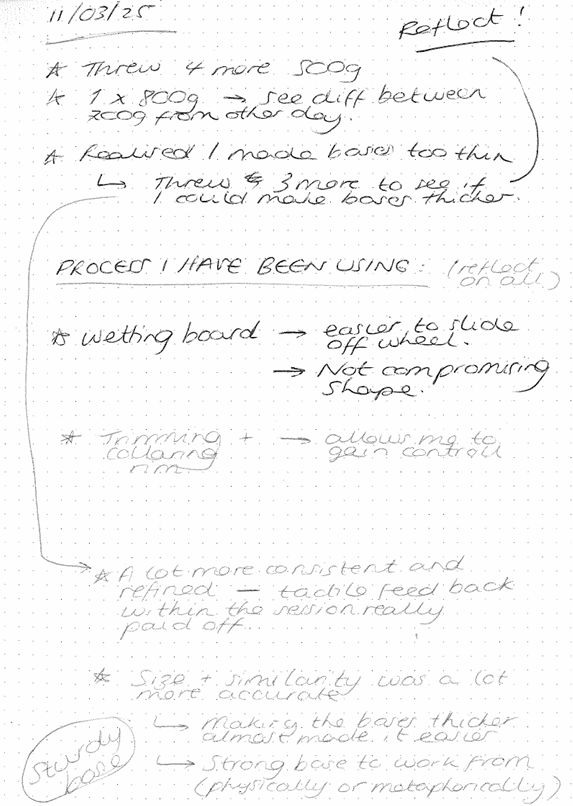 11/03/25
Reflect!
* Threw 4 more 500g
* 1 x 800g → see diff between
300g from other day.
* Realised I made bases too thin
↳ Threw 3 more to see if
I could make bases thicker.
PROCESS I HAVE BEEN USING: (reflect
on all)
* wetting board → easier to slide
off wheel.
→ Not compromising
shape.
* Trimming + → allows me to
collaring gain controll
rim
* A lot more consistent and
refined — tactile feed back
within the session really
paid off.
* Size + similarity was a lot
more accurate
↳ Making the bases thicker
almost made it easier
sturdy
base
↳ Strong base to work from
(physically or metaphorically)